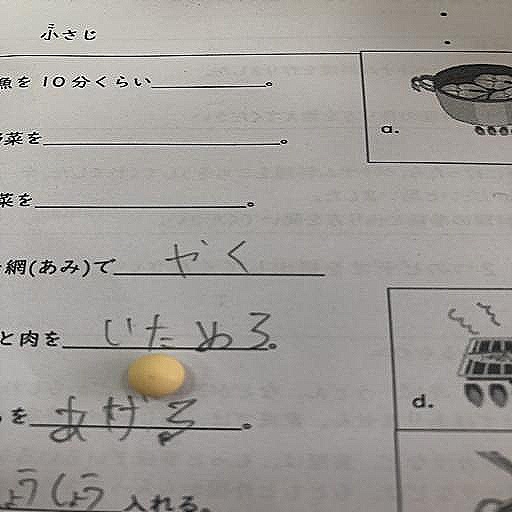 小さじ
こ
魚を10分くらい 。
a.
野菜を 。
菜を 。
網(あみ)で やく
と肉を いためる。
d.
を あげる 。
ょうしょう 入れる。